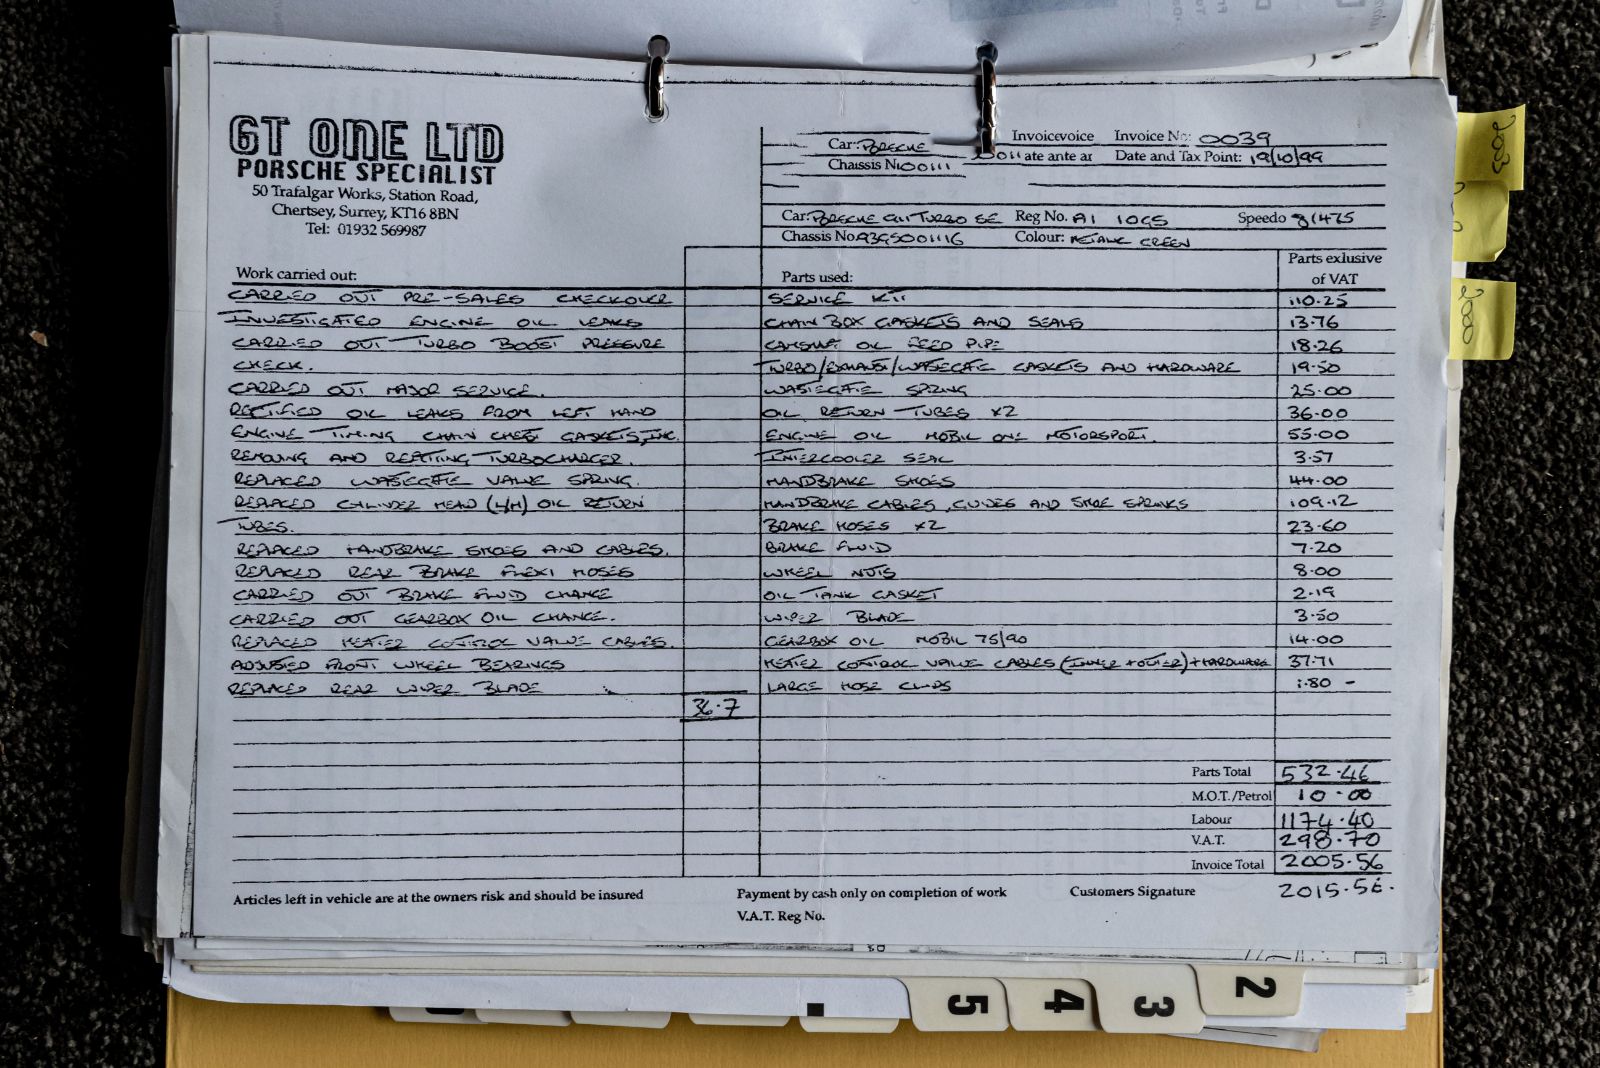 GT ONE LTD
PORSCHE SPECIALIST
50 Trafalgar Works, Station Road,
Chertsey, Surrey, KT16 8BN
Tel: 01932 569987
Car: PORSCHE
Invoicevoice Invoice No: 0039
Chassis N
ate ante ar Date and Tax Point: 19/10/99
Car: PORSCHE 911 TURBO SE Reg No. A1 10GS Speedo 81475
Chassis No A3GS001116 Colour: METALIC GREEN
Work carried out: Parts used: Parts exlusive of VAT
CARRIED OUT PRE-SALES CHECKOVER SERVICE KIT 110.25
INVESTIGATED ENGINE OIL LEAKS CHAIN BOX GASKETS AND SEALS 13.76
CARRIED OUT TURBO BOOST PRESSURE CAMSHAFT OIL FEED PIPE 18.26
CHECK. TURBO/EXHAUST/WASTEGATE GASKETS AND HARDWARE 19.50
CARRIED OUT MAJOR SERVICE. WASTEGATE SPRING 25.00
RECTIFIED OIL LEAKS FROM LEFT HAND OIL RETURN TUBES X2 36.00
ENGINE TIMING CHAIN CHEST GASKETS, INC. ENGINE OIL MOBIL ONE MOTORSPORT. 55.00
REMOVING AND REFITING TURBOCHARGER. INTERCOOLER SEAL 3.57
REPLACED WASTEGATE VALVE SPRING. HANDBRAKE SHOES 44.00
REPLACED CYLINDER HEAD (L/H) OIL RETURN HANDBRAKE CABLES, GUIDES AND SHOE SPRINGS 109.12
TUBES. BRAKE HOSES X2 23.60
REPLACED HANDBRAKE SHOES AND CABLES. BRAKE FLUID 7.20
REPLACED REAR BRAKE FLEXI HOSES WHEEL NUTS 8.00
CARRIED OUT BRAKE FLUID CHANGE OIL TANK GASKET 2.19
CARRIED OUT GEARBOX OIL CHANGE. WIPER BLADE 3.50
REPLACED HEATER CONTROL VALVE CABLES. GEARBOX OIL MOBIL 75/90 14.00
ADJUSTED FRONT WHEEL BEARINGS HEATER CONTROL VALVE CABLES (INNER + OUTER) + HARDWARE 37.71
REPLACED REAR WIPER BLADE LARGE HOSE CLIPS 1.80 -
36.7
Parts Total 532.46
M.O.T./Petrol 10.00
Labour 1174.40
V.A.T. 298.70
Invoice Total 2005.56
2015.56.
Articles left in vehicle are at the owners risk and should be insured Payment by cash only on completion of work Customers Signature
V.A.T. Reg No.
2003
2000
5 4 3 2